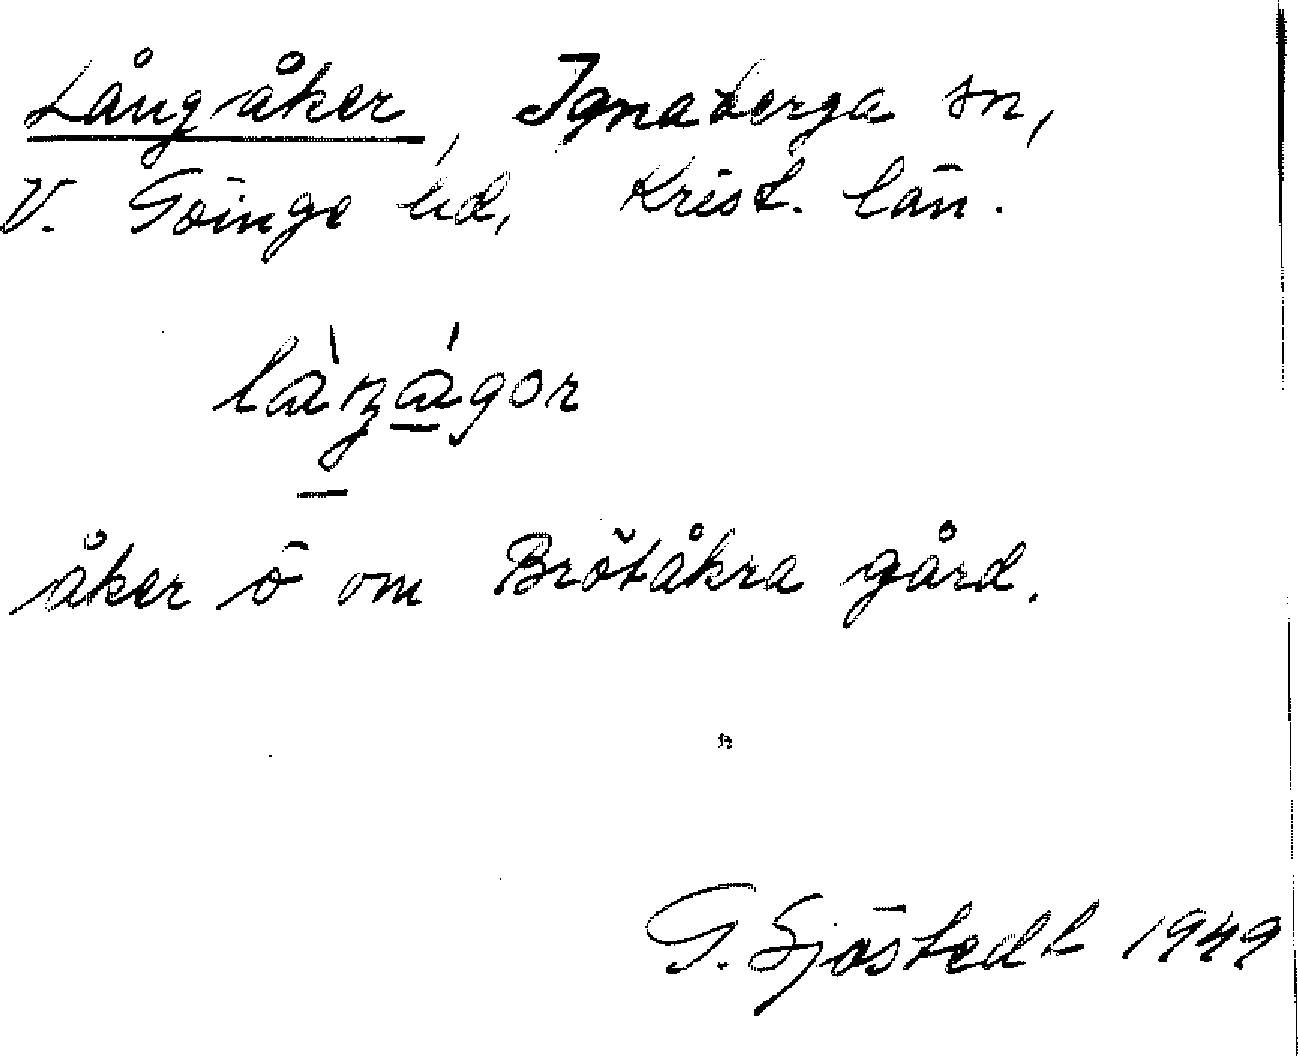 Långåker, Ignaberga sn,
V. Göinge hd, Krist. län.
åker ö om Brötåkra gård.
G. Sjöstedt 1949